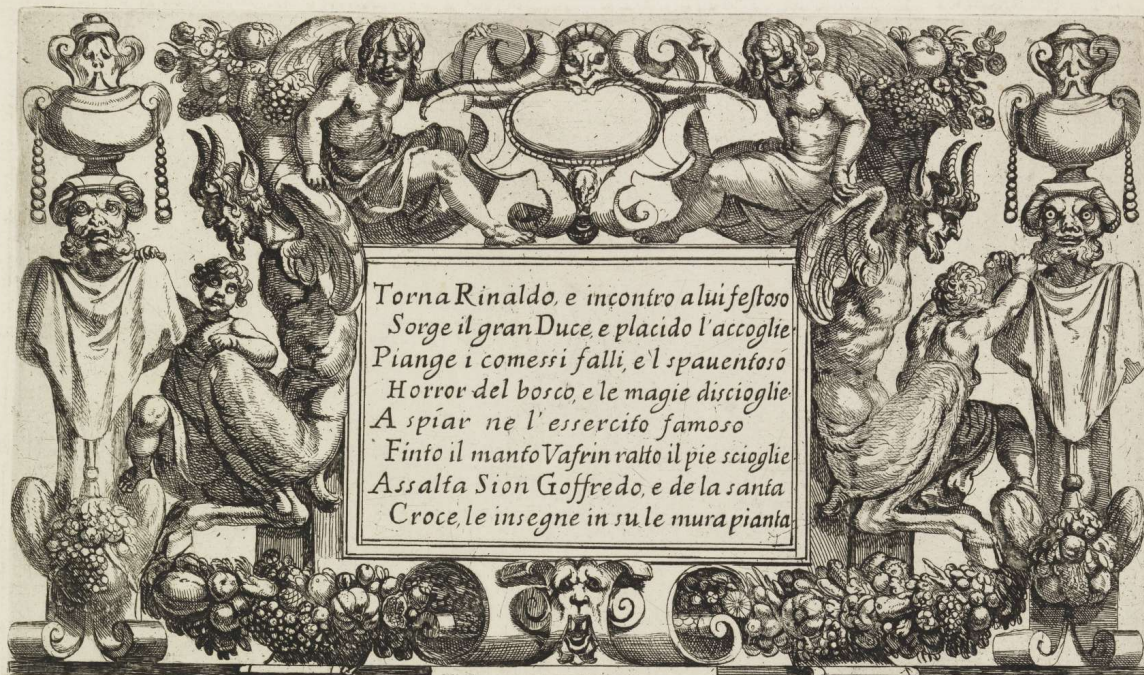 Torna Rinaldo, e incontro a lui festoso
Sorge il gran Duce, e placido l'accoglie.
Piange i comessi falli, e'l spauentoso
Horror del bosco, e le magie discioglie.
A spiar ne l'essercito famoso
Finto il manto Vafrin ratto il pie scioglie.
Assalta Sion Goffredo, e de la santa
Croce, le insegne in su le mura pianta